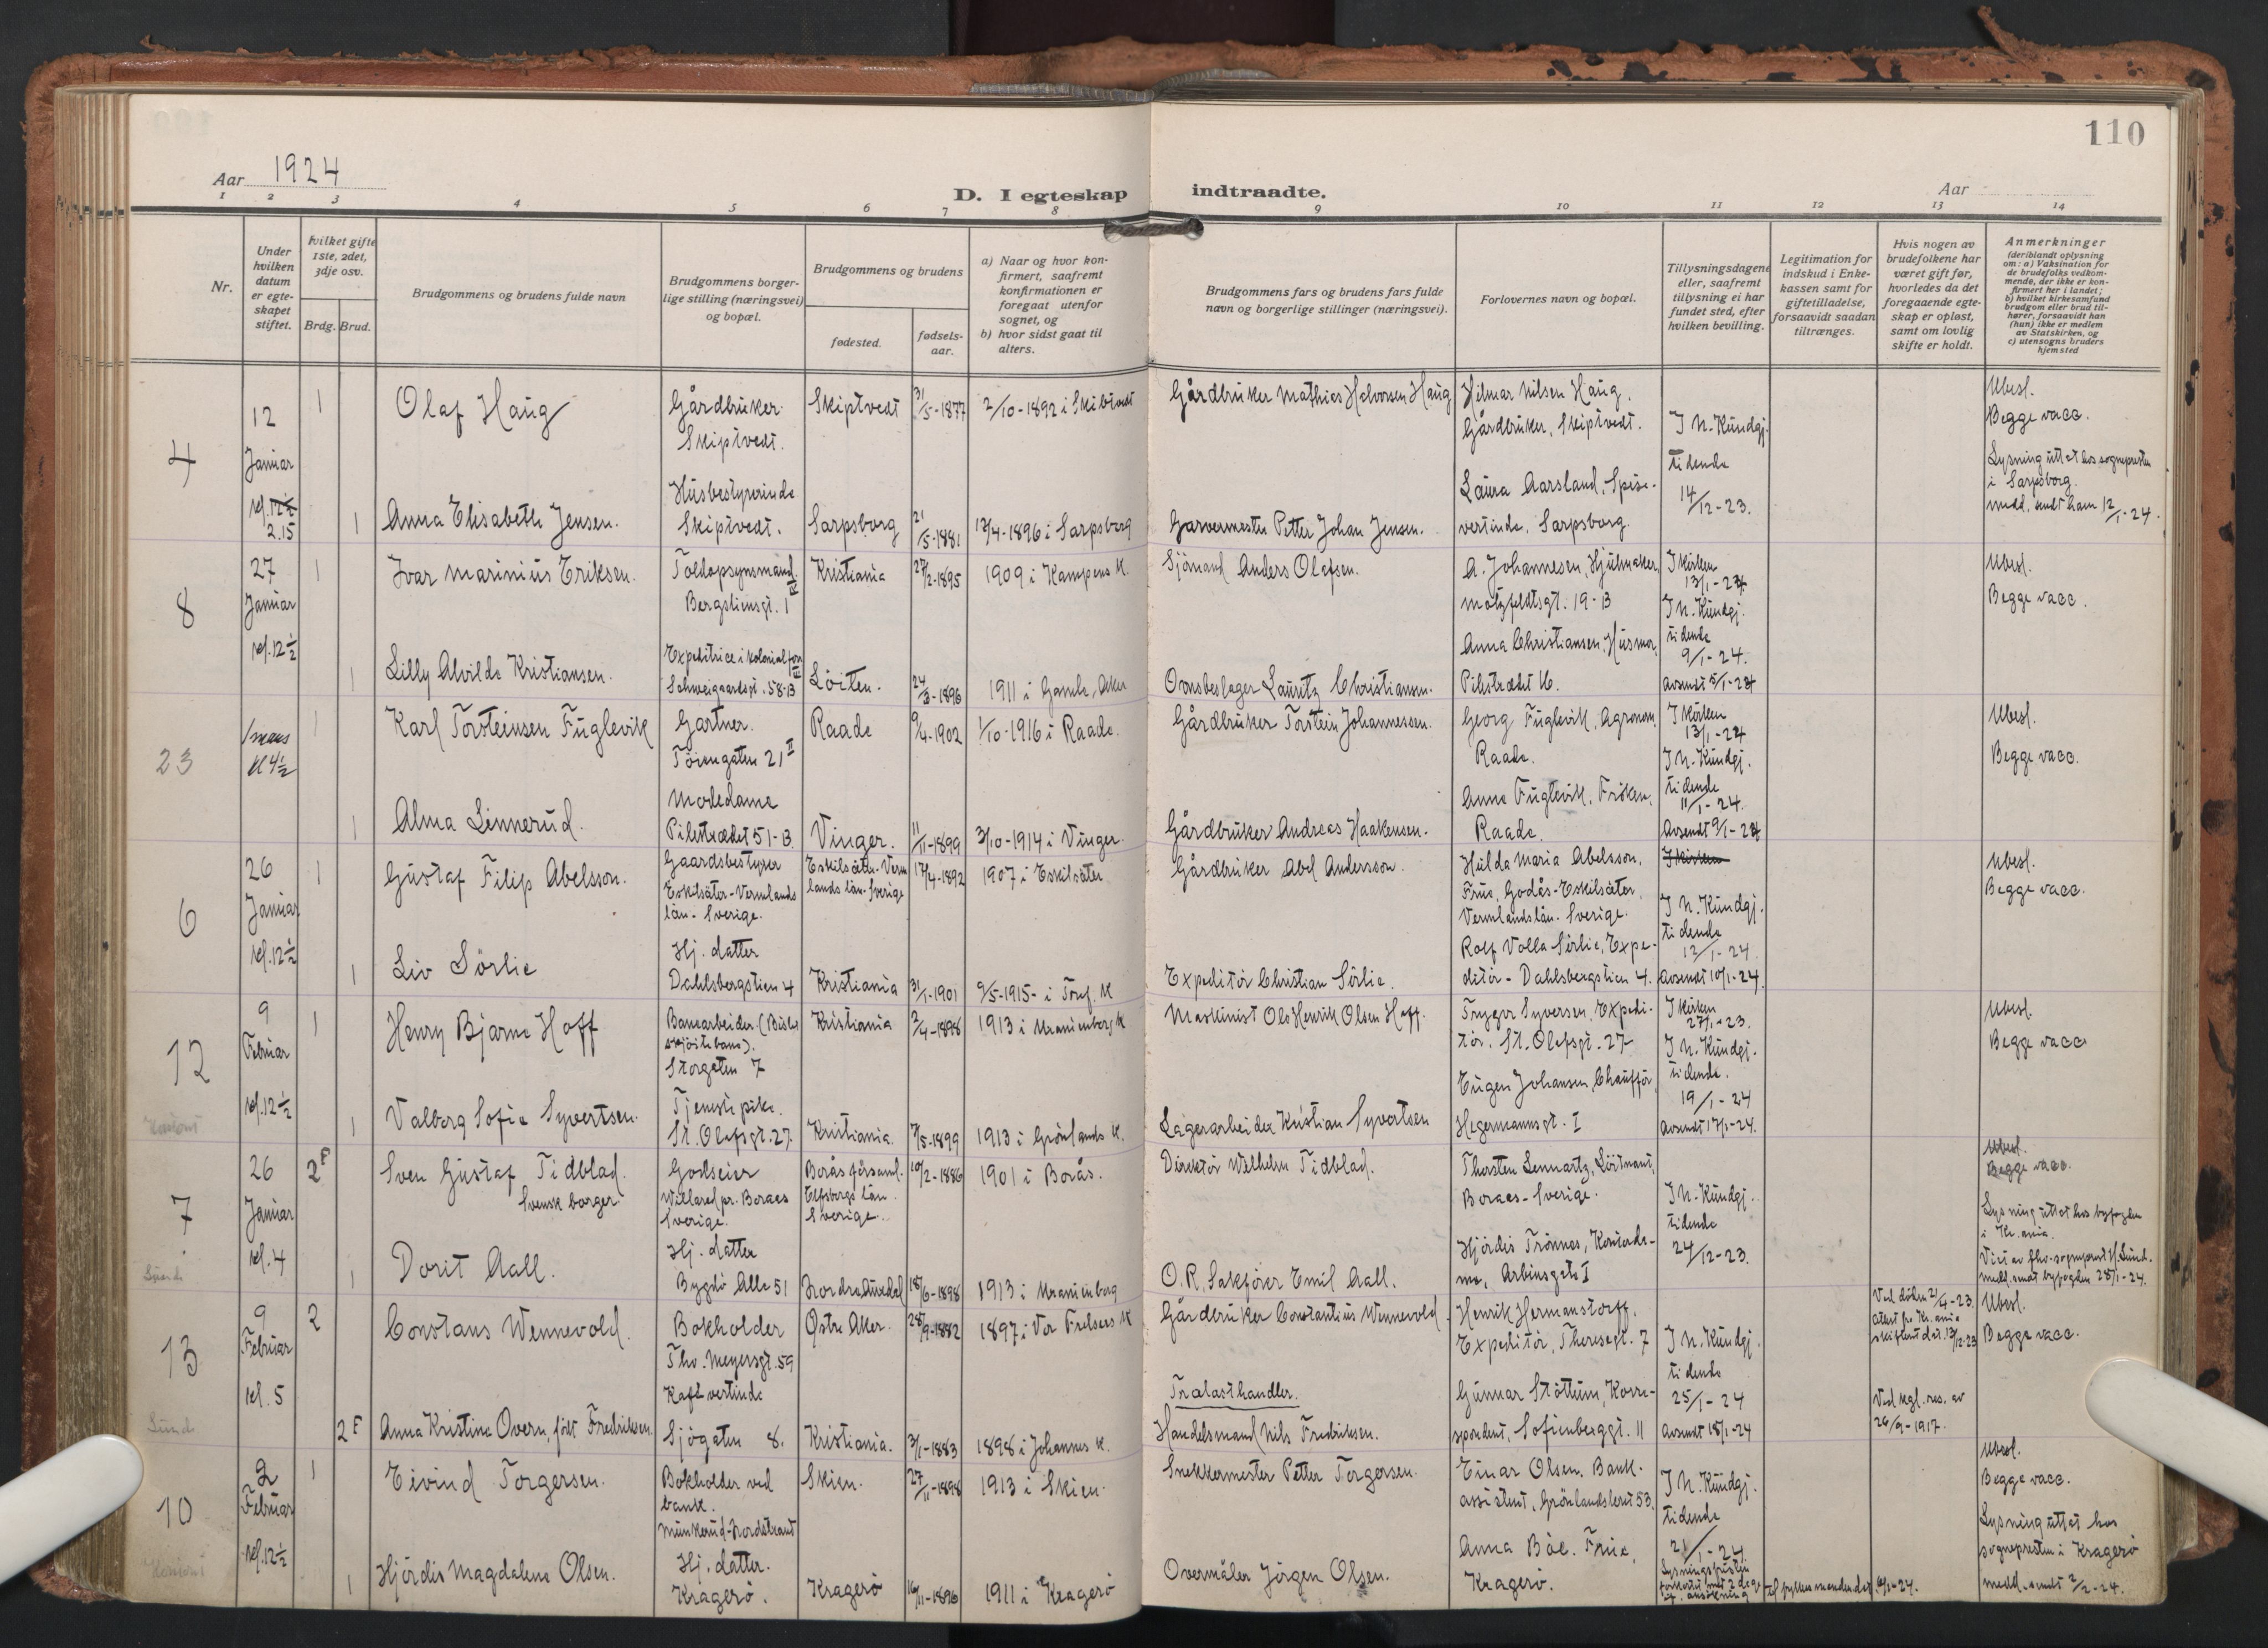 110
Aar 1924
D. I egteskap indtraadte.
Aar
1 2 3 4 5 6 7 8 9 10 11 12 13 14
Nr.
Under hvilken datum er egteskapet stiftet.
Hvilket gifte 1ste, 2det, 3dje osv.
Brdg. Brud.
Brudgommens og brudens fulde navn
Brudgommens borgerlige stilling (næringsvei) og bopæl.
Brudgommens og brudens
fødested.
fødselsaar.
a) Naar og hvor konfirmert, saafremt konfirmationen er foregaat utenfor sognet, og
b) hvor sidst gaat til alters.
Brudgommens fars og brudens fars fulde navn og borgerlige stillinger (næringsvei).
Forlovernes navn og bopæl.
Tillysningsdagene eller, saafremt tillysning ei har fundet sted, efter hvilken bevilling.
Legitimation for indskud i Enkekassen samt for giftetilladelse, forsaavidt saadan tiltrænges.
Hvis nogen av brudefolkene har været gift før, hvorledes da det foregaaende egteskap er opløst, samt om lovlig skifte er holdt.
Anmerkninger (deriblandt oplysning om: a) Vaksination for de brudefolks vedkommende, der ikke er konfirmert her i landet; b) hvilket kirkesamfund brudgom eller brud tilhører, forsaavidt han (hun) ikke er medlem av Statskirken, og c) utensogns bruders hjemsted
4
12 Januar kl. 12½ 2.15
1
Olaf Haug
Gårdbruker Skiptvedt.
Skiptvedt
31/5-1877
2/10-1892 i Skibtvedt
Gårdbruker Mathies Halvorsen Haug
Hilmar Nilsen Haug. Gårdbruker, Skiptvedt.
I N. Kundgj. tidende 14/12-23.
Ubesl. Begge vacc.
Lysning uttat hos sognepresten i Sarpsborg. medd. sendt ham 12/1-24.
1
Anna Elisabeth Jensen.
Husbestyrerinde Skiptvedt.
Sarpsborg
21/5-1881
12/4-1896 i Sarpsborg
Garvermester Petter Johan Jensen.
Laura Aarsland, Spisevertinde, Sarpsborg.
8
27 Januar kl. 12½
1
Ivar Marinius Eriksen.
Toldopsynsmand. Bergsliensgt. 1 IV
Kristiania
27/2-1895
1909 i Kampens K.
Sjömand Anders Olafsen.
A. Johannesen, Hjulmaker, Motzfeldtsgt. 19-B
I kirken 13/1-24. I N. Kundgj. tidende 9/1-24. Avsendt 5/1-24
Ubesl. Begge vacc.
1
Lilly Alvilde Kristiansen.
Expeditrice i kolonialforr. Schweigaardsgt. 58-B
Löiten.
24/3-1896
1911 i Gamle Aker
Ovnsbeslager Lauritz Christiansen.
Anna Christiansen, Husmor, Pilestrædet 16.
23
1 mars kl 4½
1
Karl Torsteinsen Fuglevik
Gartner. Töiengaten 21 II
Raade
9/4-1902
1/10-1916 i Raade.
Gårdbruker Torstein Johannessen.
Georg Fuglevik, Agronom, Raade.
I kirken 13/1-24 I N. Kundgj. tidende 11/1-24. Avsendt 9/1-24
Ubesl. Begge vacc.
1
Alma Linnerud.
Motedame Pilestrædet 51-B
Vinger.
11/11-1899
3/10-1914 i Vinger.
Gårdbruker Andreas Haakensen.
Anna Fuglevik, Fröken, Raade.
6
26 Januar kl. 12½
1
Gustaf Filip Abelsson.
Gaardsbestyrer Eskilsäter-Vermlands län-Sverige.
Eskilsäter-Vermlands län-Sverige
17/4-1892
1907 i Eskilsäter
Gårdbruker Abel Andersson.
Hulda Maria Abelsson, Frue, Godås-Eskilsäter, Vermlandslän-Sverige.
I kirken
I N. Kundgj. tidende 12/1-24 Avsendt 10/1-24.
Ubesl. Begge vacc.
1
Liv Sörlie
Hj. datter Dahlsbergstien 4
Kristiania
31/1-1901
9/5-1915- i Tref. K
Expeditör Christian Sörlie.
Rolf Volla Sörlie, Expeditör - Dahlsbergstien 4.
12
9 Februar kl. 12½
1
Henry Bjarne Hoff
Banearbeider (Bislet skjöitebane). Storgaten 7
Kristiania
2/4-1898
1913 i Uranienborg K
Maskinist Ole Henrik Olsen Hoff.
Trygve Syversen, Expeditör. St. Olafsgt. 27
I kirken 27/1-23. I N. Kundgj. tidende. 19/1-24 Avsendt 17/1-24.
Ubesl. Begge vacc
1
Valborg Sofie Syvertsen.
Tjenestepike. St. Olafsgt. 27.
Kristiania.
7/5-1899
1913 i Grönlands K.
Lagerarbeider Kristian Syvertsen
Eugen Johansen, Chauffför, Hegermannsgt. I
Kontoret
7
26 Januar kl. 4
2 F
Sven Gustaf Tidblad.
Svensk borger
Godseier Villared pr. Boraes Sverige.
Borås församl. Elfsborgs län. Sverige.
10/2-1886
1901 i Borås.
Direktör Wilhelm Tidblad.
Thorsten Lennartz, Löitnant, Boraes-Sverige.
I N. Kundgj. tidende 24/12-23.
Ubesl. Begge vacc.
Lysning uttat hos byfogden i Kr.ania. Viet av fhv. sogneprest H. Lund. medd. sendt byfogden 28/1-24.
1
Dorit Aall.
Hj. datter Bygdö Alle 51
Nordre Aurdal
18/6-1898
1913 i Uranienborg
O.R. Sakförer Emil Aall.
Hjördis Trönnes, Kontordame, Arbinsgate I
Lund
13
9 Februar kl. 5
2
Constans Wennevold.
Bokholder Thv. Meyersgt. 59
Östre Aker.
28/9-1882
1897 i Vor Frelsers K
Gårdbruker Constantius Wennevold.
Henrik Hermanstorff. Expeditör, Theresesgt. 7
I N. Kundgj. tidende 25/1-24 Avsendt 18/1-24
Ved döden 21/4-23. attest fra Kr.ania skifteret dat. 13/12-23
Ubesl. Begge vacc.
2 F
Anna Kristine Overn, födt Fredriksen.
Kafévertinde Sjögaten 8.
Kristiania.
3/1-1883
1898 i Johannes K.
Trælasthandler.
Handelsmand Nils Fredriksen.
Gunnar Stöttum, Korrespondent, Sofienberggt. 11
Ved kgl. res. av 26/9-1917.
Lund
10
2 Februar kl. 12½
1
Eivind Torgersen.
Bokholder ved bank. Munkerud-Nordstrand
Skien.
27/11-1898
1913 i Skien.
Snekkermester Petter Torgersen.
Einar Olsen. Bankassistent, Grönlandsleret 53.
I N. Kundgj. tidende 21/1-24.
Ubesl. Begge vacc.
Lysning uttat hos sognepresten i Kragerö medd. sendt 2/2-24.
1
Hjördis Magdalene Olsen.
Hj. datter. Kragerö.
Kragerö
16/11-1896
1911 i Kragerö
Overmåler Jörgen Olsen.
Anna Böe. Frue, Kragerö.
Kontoret